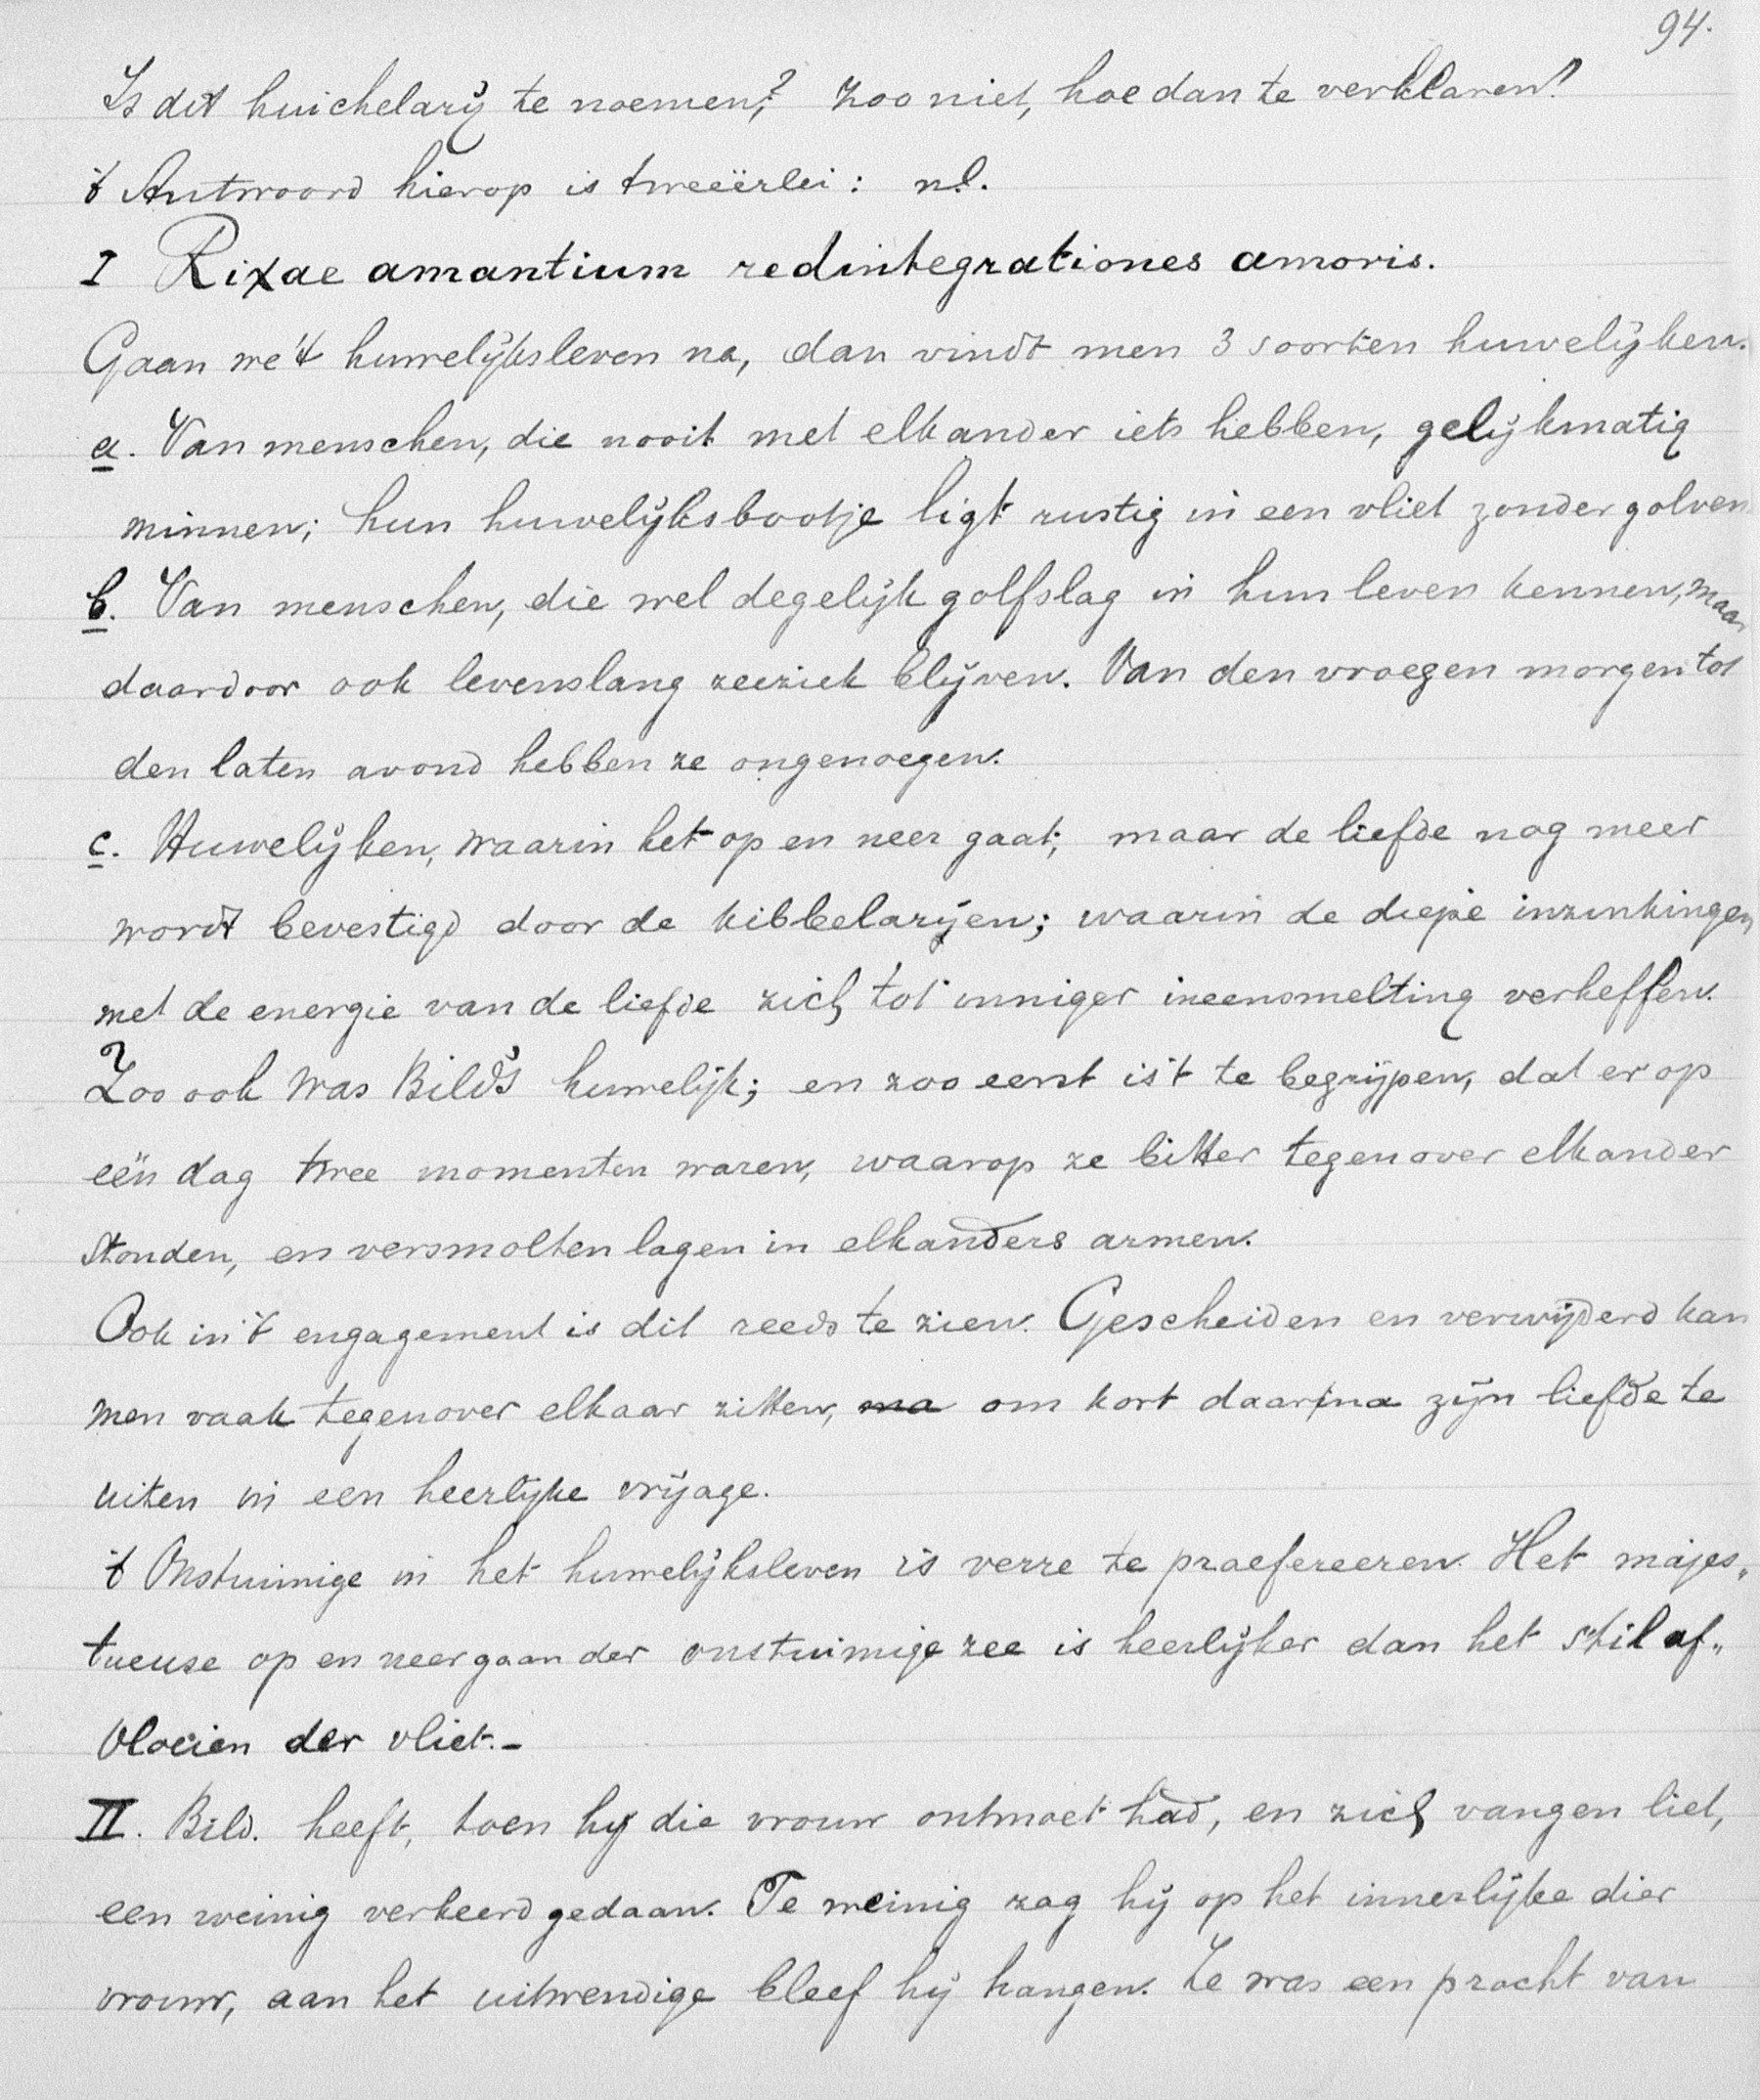 94.
Is dit huichelarij te noemen? Zoo niet, hoe dan te verklaren?
't Antwoord hierop is tweeërlei: n.l.
I Rixae amantium redintegrationes amoris.
Gaan we 't huwelijksleven na, dan vindt men 3 soorten huwelijken.
a. Van menschen, die nooit met elkander iets hebben, gelijkmatig
minnen; hun huwelijksbootje ligt rustig in een vliet zonder golven
b. Van menschen, die wel degelijk golfslag in hun leven kennen, maar
daardoor ook levenslang zeeziek blijven. Van den vroegen morgen tot
den laten avond hebben ze ongenoegen.
c. Huwelijken, waarin het op en neer gaat; maar de liefde nog meer
wordt bevestigd door de kibbelarijen; waarin de diepe inzinkingen
met de energie van de liefde zich tot inniger ineensmelting verheffen.
Zoo ook was Bild's huwelijk; en zoo eerst is 't te begrijpen, dat er op
eën dag twee momenten waren, waarop ze bitter tegenover elkander
stonden, en versmolten lagen in elkanders armen.
Ook in 't engagement is dit reeds te zien. Gescheiden en verwijderd kan
men vaak tegenover elkaar zitten, ma om kort daarna zijn liefde te
uiten in een heerlijke vrijage.
't Onstuimige in het huwelijksleven is verre te praefereeren. Het majes„
tueuse op en neer gaan der onstuimige zee is heerlijker dan het stil af„
vloeien der vliet.-
II. Bild. heeft, toen hij die vrouw ontmoet had, en zich vangen liet,
een weinig verkeerd gedaan. Te weinig zag hij op het innerlijke dier
vrouw, aan het uitwendige bleef hij hangen. Ze was een pracht van